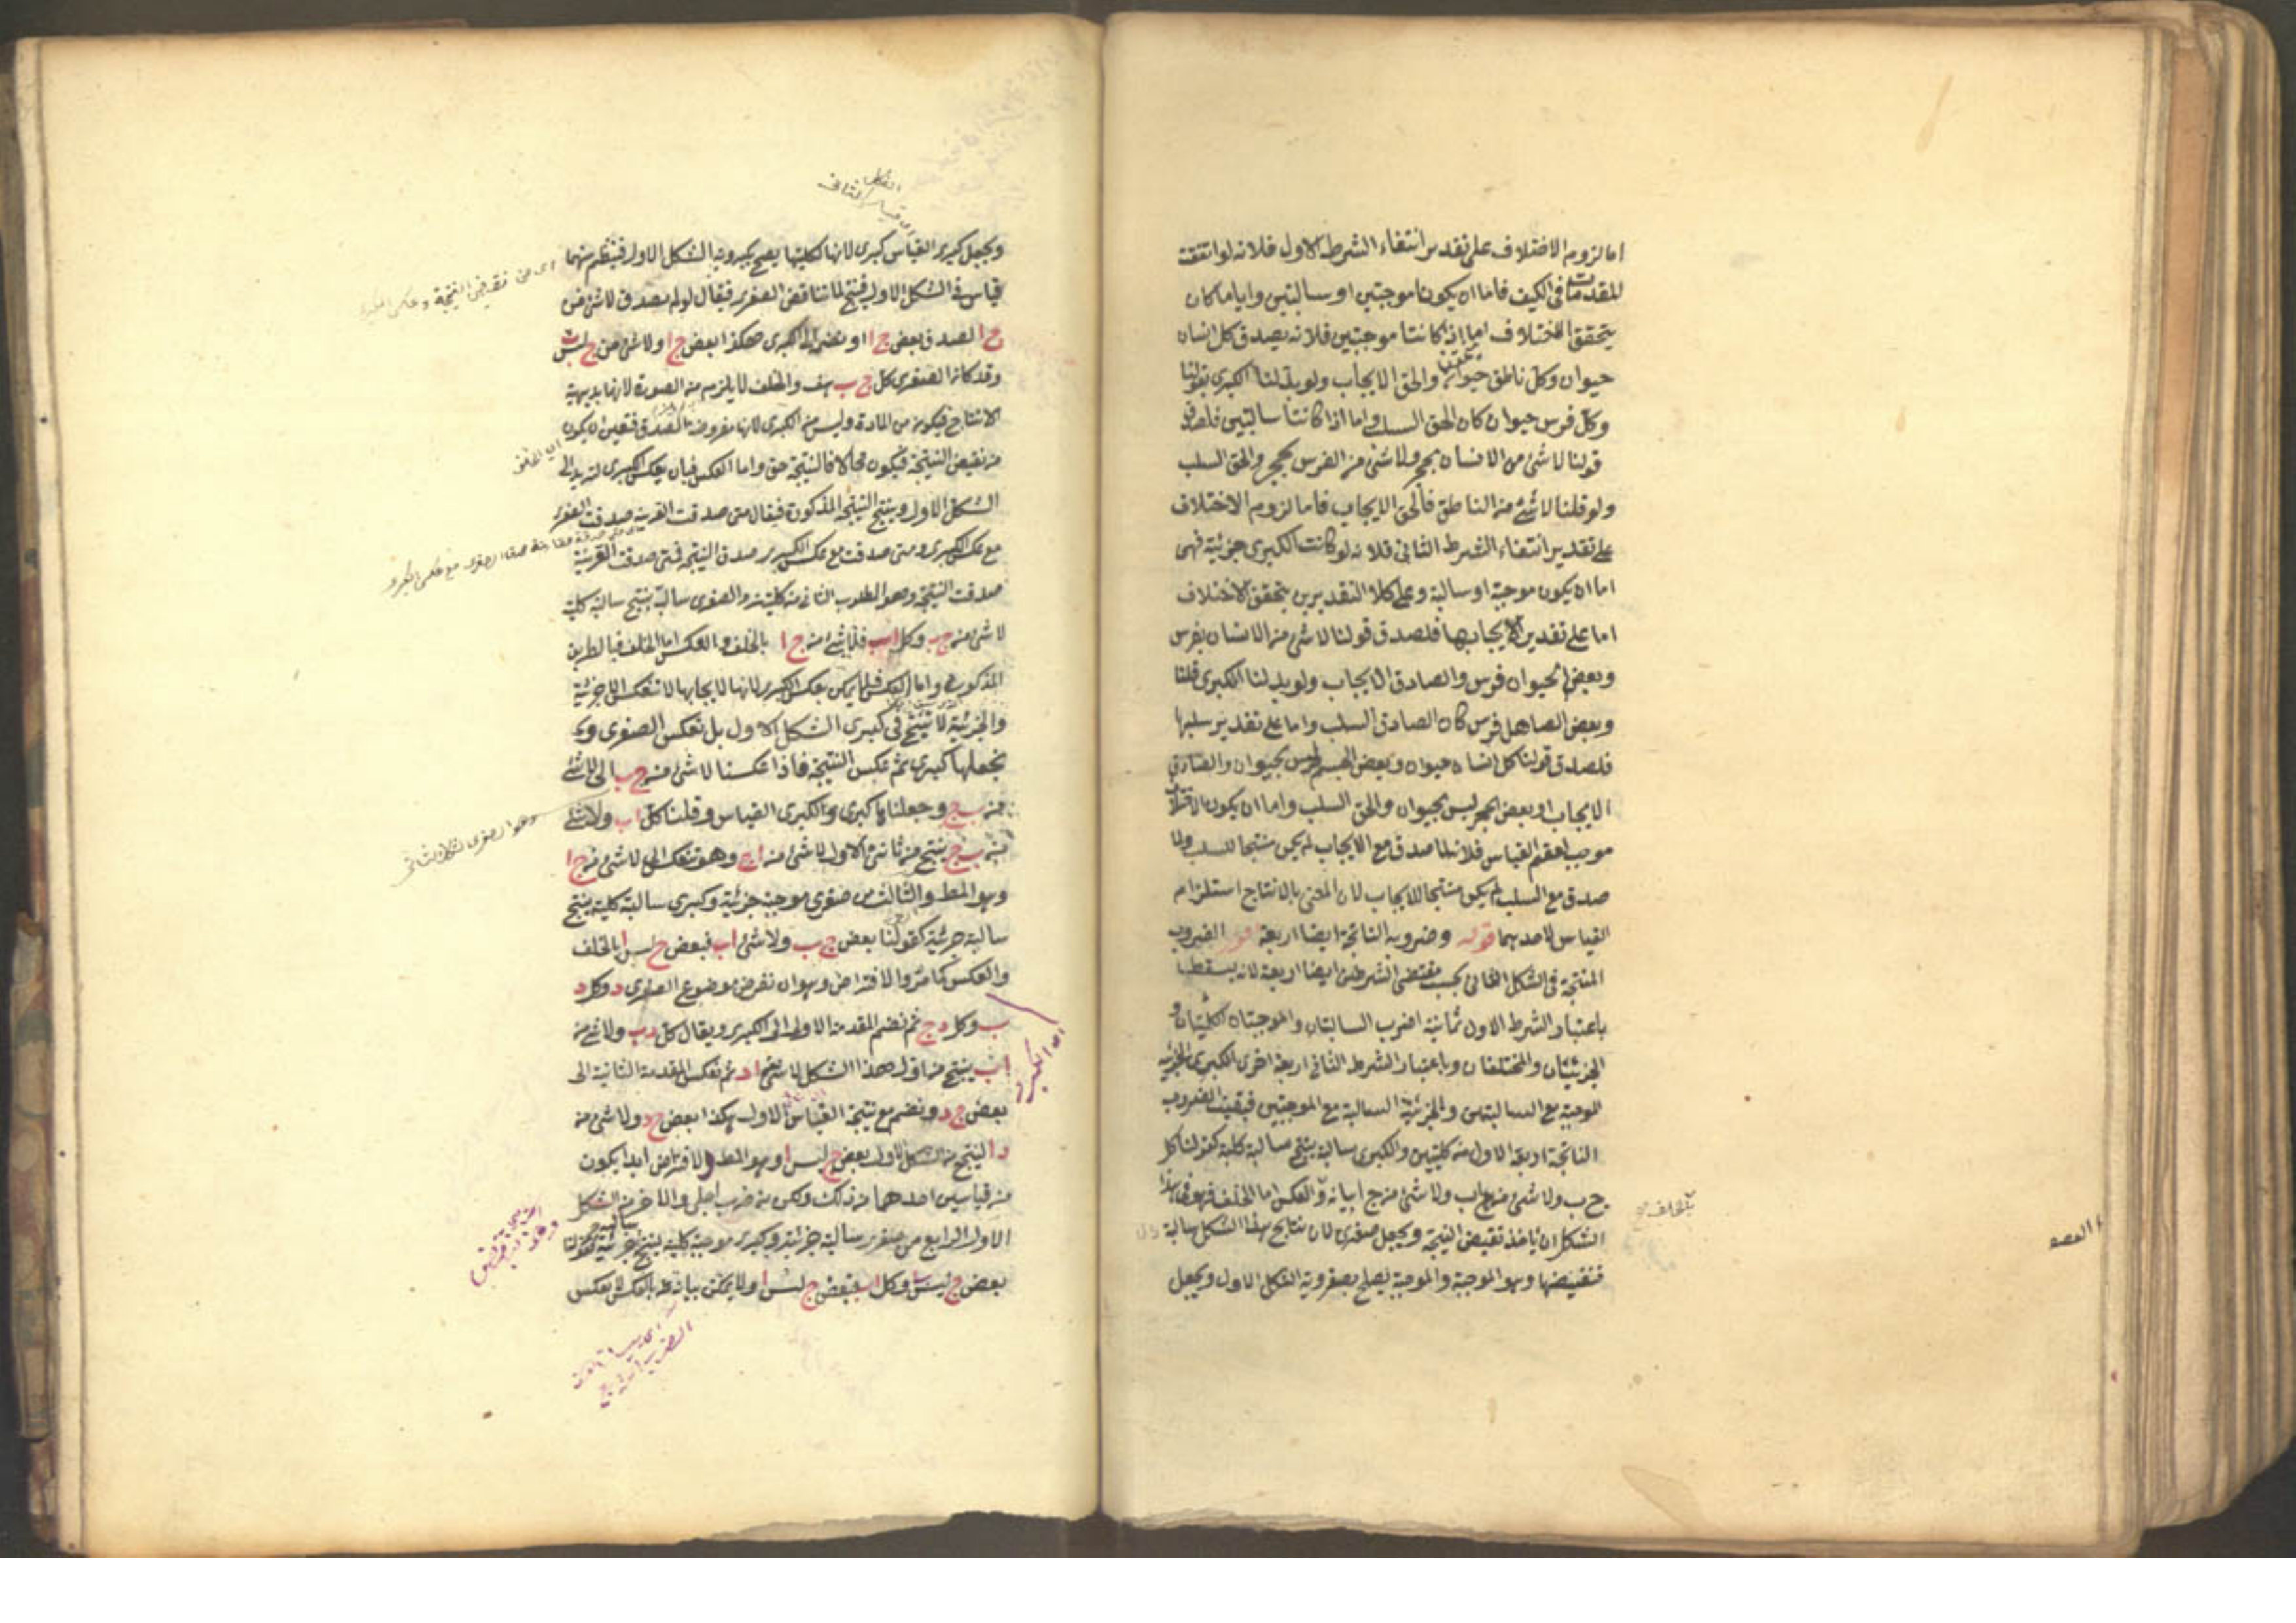 اما لزوم الاختلاف على تقدير انتفاء الشرط الاول فلانه لو اتفقت
المقدمتان فى الكيف فاما ان يكونا موجبتين او سالبتين واياما كان
يتحقق الاختلاف اما اذا كانتا موجبتين فلانه يصدق كل انسان
حيوان وكل ناطق حيوان والحق الايجاب ولو بدلنا الكبرى بقولنا
وكل فرس حيوان كان الحق السلب واما اذا كانتا سالبتين فلصدق
قولنا لا شئ من الانسان بحجر ولا شئ من الفرس بحجر والحق السلب
ولو قلنا لا شئ من الناطق فالحق الايجاب فاما لزوم الاختلاف
على تقدير انتفاء الشرط الثانى فلانه لو كانت الكبرى جزئية فهى
اما ان يكون موجبة او سالبة وعلى كلا التقديرين يتحقق الاختلاف
اما على تقدير ايجابها فلصدق قولنا لا شئ من الانسان بفرس
وبعض الحيوان فرس والصادق الايجاب ولو بدلنا الكبرى قلنا
وبعض الصاهل فرس كان الصادق السلب واما على تقدير سلبها
فلصدق قولنا كل انسان حيوان وبعض الجسم ليس بحيوان والصادق
الايجاب او بعض الحجر ليس بحيوان والحق السلب واما ان يكون الاختلاف
موجب لعقم القياس فلانه لما صدق مع الايجاب لم يكن منتجا للسلب ولما
صدق مع السلب لم يكن منتجا للايجاب لان المعنى بالانتاج استلزام
القياس لاحدهما قوله وضروبه الناتجة ايضا اربعة اقول الضروب
المنتجة فى الشكل الثانى بحسب مقتضى الشرطين ايضا اربعة لانه يسقط
باعتبار الشرط الاول ثمانية اضرب السالبتان والموجبتان الكليتان و
الجزئيتان والمختلفتان وباعتبار الشرط الثانى اربعة اخرى الكبرى الجزئية
الموجبة مع السالبتين والجزئية السالبة مع الموجبتين فبقيت الضروب
الناتجة اربعة الاول من كليتين والكبرى سالبة ينتج سالبة كلية كقولنا كل
ج ب ولا شئ من اب ولا شئ من ج ا بيانه والعكس اما الخلف فهو فى هذا
الشكل ان ناخذ نقيض النتيجة ويجعل صغرى لان نتايج هذا الشكل سالبة
فنقيضها وهو الموجبة والموجبة يصلح بصغروية الشكل الاول ويجعل
بالخلف
ويجعل كبرى القياس كبرى لانها لكليتها يصح بكبروية الشكل الاول فينتظم منهما
قياس فى الشكل الاول فينتج لما يناقض الصغرى فيقال لو لم يصدق لا شئ من
ج ا لصدق بعض ج ا او يضم الى الكبرى هكذا بعض ج ا ولا شئ من
وقد كان الصغرى كل ج ب هف والخلف لا يلزم من الصورة لانها بديهية
الانتاج فيكون من المادة وليس من الكبرى لانها مفروضة الصدق فتعين ان يكون
من نقيض النتيجة فيكون محالا فالنتيجة حق واما العكس فبان يعكس الكبرى ليرتد الى
الشكل الاول وينتج النتيجة المذكورة فيقال متى صدقت القرينة صدقت الصغرى
مع عكس الكبرى ومتى صدقت مع عكس الكبرى صدق النتيجة فمتى صدقت القرينة
صدقت النتيجة وهو المطلوب الثانى من كليتين والصغرى سالبة ينتج سالبة كلية
لا شئ من ج ب وكل اب فلا شئ من ج ا بالخلف والعكس اما الخلف فبالطريق
المذكور واما العكس فلا يمكن بعكس الكبرى لانها لايجابها لا تنعكس الا جزئية
والجزئية لا ينتج فى كبرى الشكل الاول بل تعكس الصغرى و
نجعلها كبرى ثم عكس النتيجة فاذا عكسنا لا شئ من ج ب الى لا شئ
من ب ج وجعلناها كبرى والكبرى القياس وقلنا كل اب ولا شئ
من ب ج ينتج من ثانى الاول لا شئ من ا ج وهو تنعكس الى لا شئ من ج ا
وهو المط والثالث من صغرى موجبة جزئية وكبرى سالبة كلية ينتج
سالبة جزئية كقولنا بعض ج ب ولا شئ اب فبعض ج ليس ا بالخلف
والعكس كما مر والافتراض وهو ان نفرض موضوع الصغرى د وكل د
ب وكل د ج ثم نضم المقدمة الاولى الى الكبرى ويقال كل د ب ولا شئ من
اب ينتج من اول هذا الشكل لا شئ ا د ثم نعكس المقدمة الثانية الى
بعض ج د ونضم مع نتيجة القياس الاول هكذا بعض ج د ولا شئ من
د ا لينتج من الشكل الاول بعض ج ليس ا وهو المط والافتراض ابدا يكون
من قياسين احدهما من ذلك ولكن من ضرب اجلى والاخر من الشكل
الاول الرابع من صغرى سالبة جزئية وكبرى موجبة كلية ينتج سالبة جزئية كقولنا
بعض ج ليس ب وكل اب فبعض ج ليس ا ولا يمكن بيانه بالعكس لا بعكس
اى من نقيض النتيجة وعكس
اى الكبرى